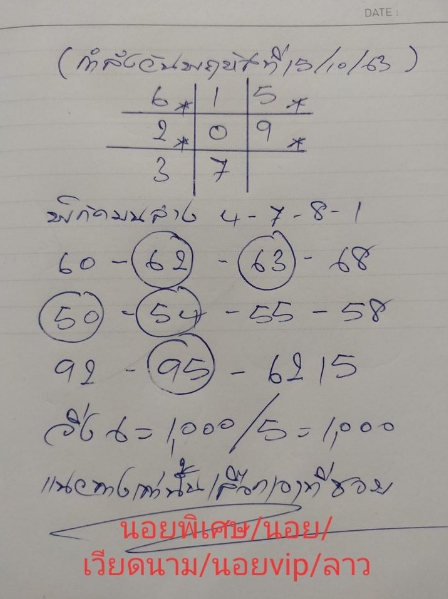 DATE :
(กำลังวันพฤหัสที่ 15/10/63)
6* 1 5*
2* 0 9*
3 7
พิกัดบนล่าง 4-7-8-1
60 - 62 - 63 - 68
50 - 54 - 55 - 58
92 - 95 - 6215
วิ่ง 6 = 1,000/5 = 1,000
แนวทางเท่านั้นเลือกเอาที่ชอบ
นอยพิเศษ/นอย/
เวียดนาม/นอยvip/ลาว